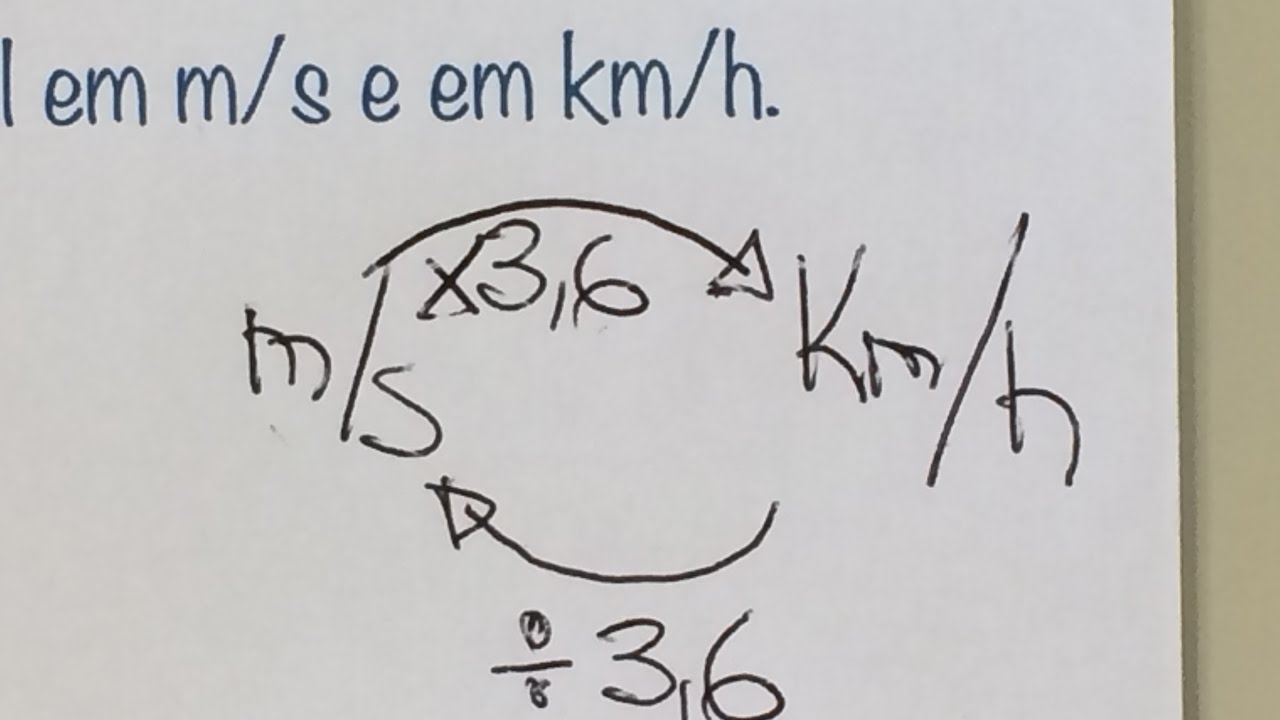 l em m/s e em km/h.
x3,6
m/s Km/h
÷3,6